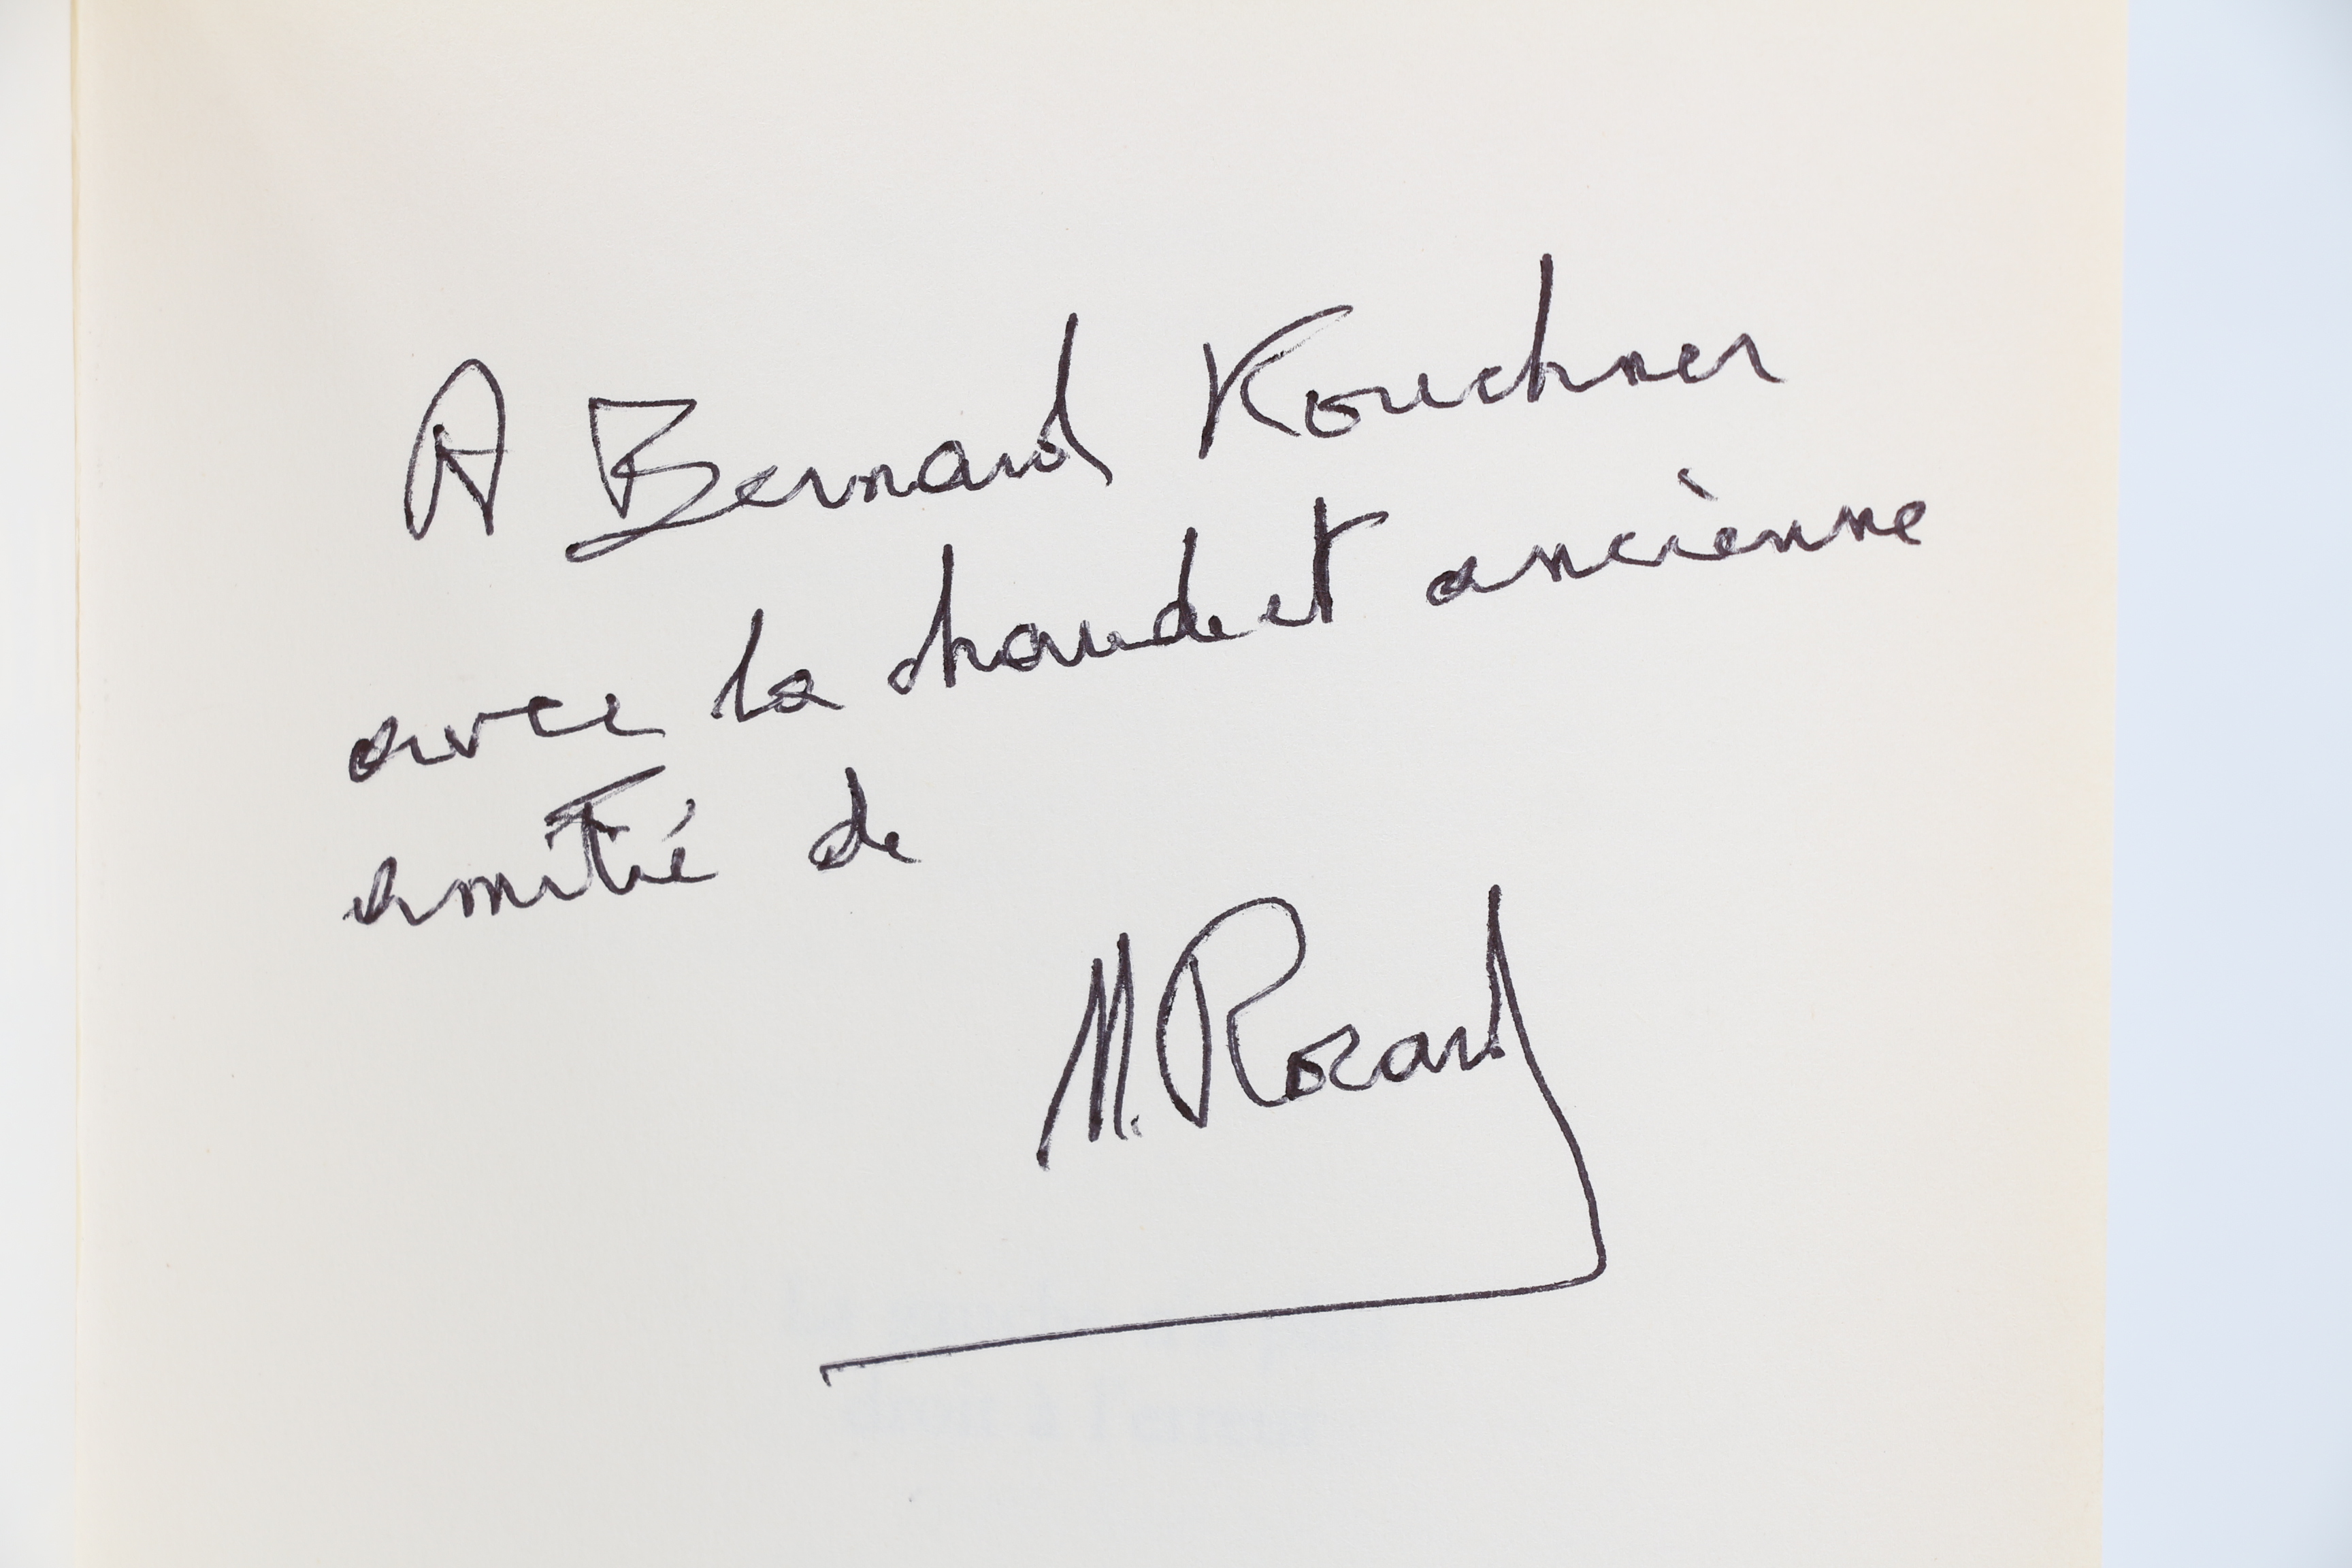 A Bernard Kouchner
avec la chaude et ancienne
amitié de
M. Rocard